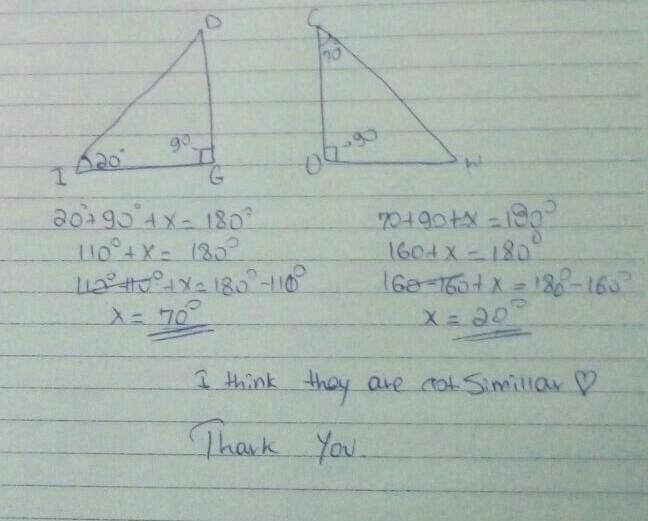 D C
70
90 90
I 20° G O W
20°+90°+x=180° 70+90+x=180°
110°+x=180° 160+x=180°
110°-110°+x=180°-110° 160-160+x=180°-160°
x=70° x=20°
I think they are not Simillar ♡
Thank You.